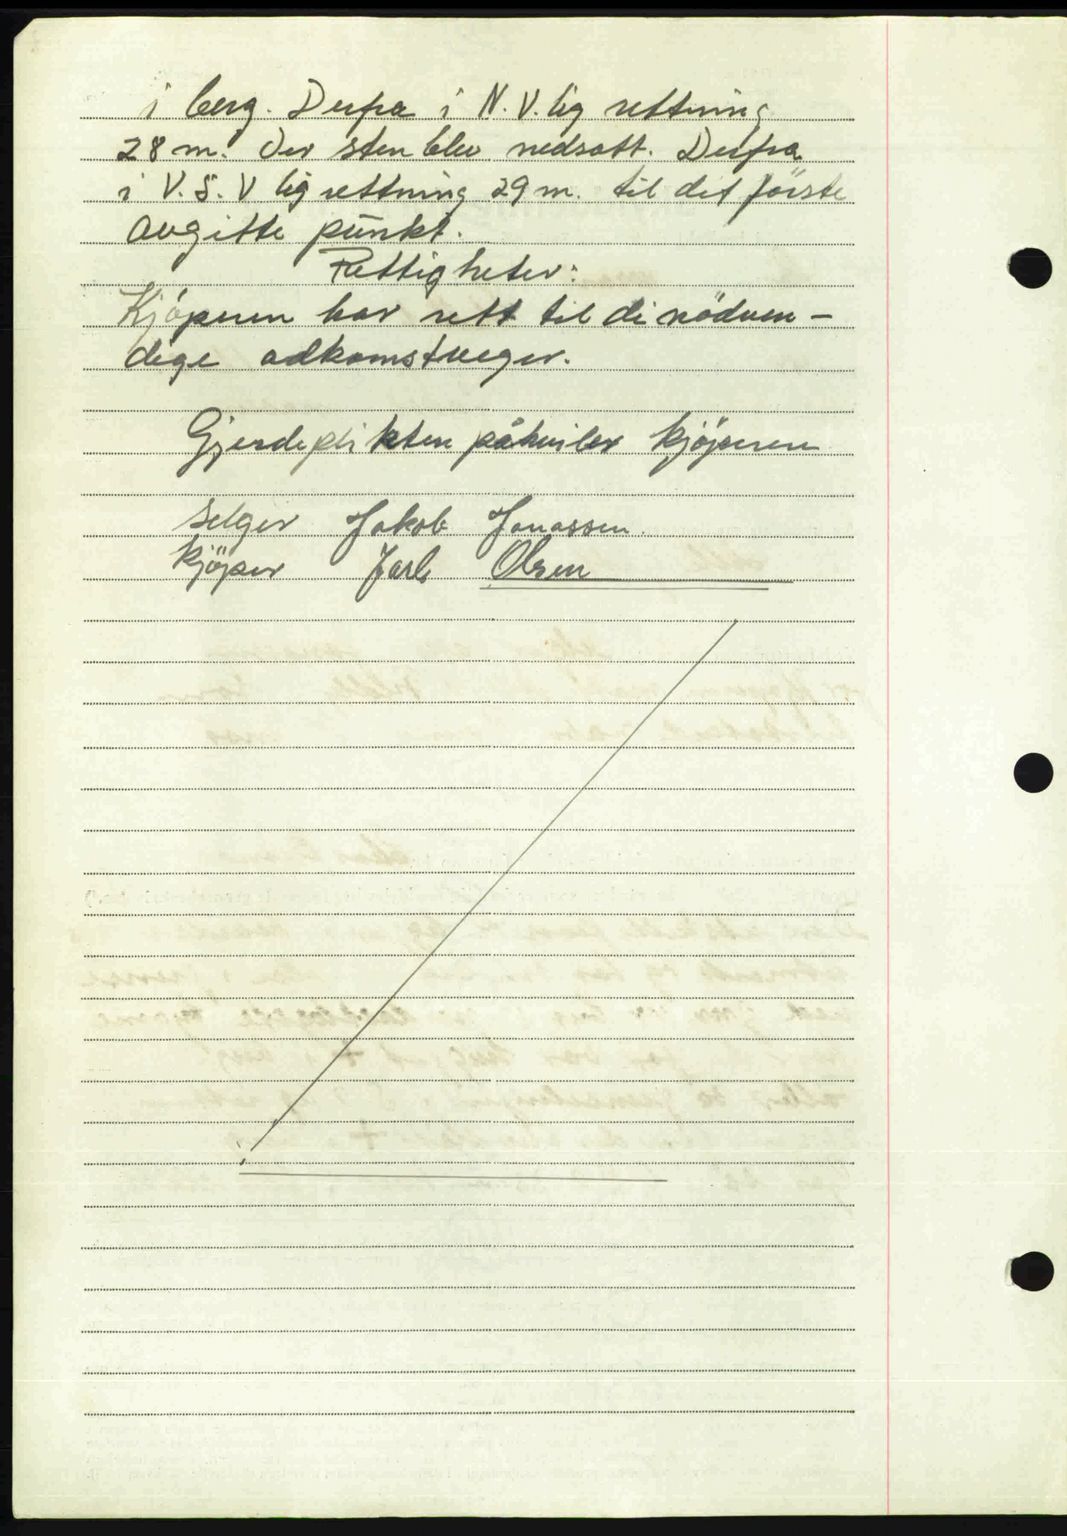 i berg. Derfra i N.V.lig rettning
28 m. der sten blev nedsatt. Derfra
i V.S.V lig rettning 29 m. til det første
avgitte punkt.
Rettigheter:
Kjöperen har rett til de nödven-
dige adkomstveeger.
Gjerdeplikten påhviler kjöperen
Selger Jakob Jonassen.
kjöper Jarl Olsen